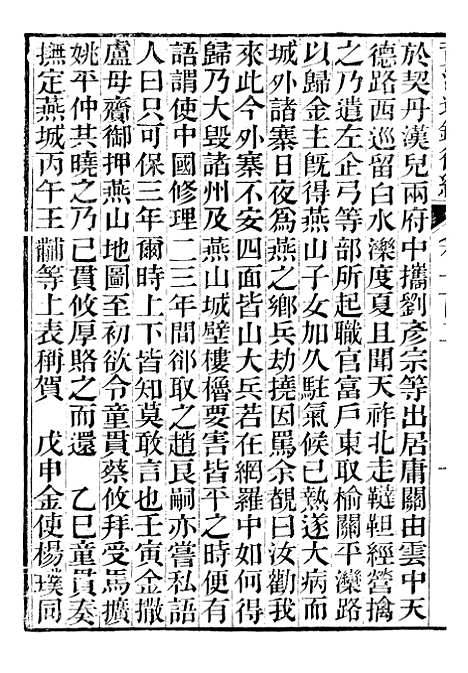 於契丹漢兒兩府中攜劉彥宗等出居庸關由雲中天
德路西巡留白水濼度夏且聞天祚北走韃靼經營擒
之乃遣左企弓等部所起職官富戶東取榆關平灤路
以歸金主旣得燕山子女加久駐氣候已熱遂大病而
城外諸寨日夜爲燕之鄉兵劫撓因罵余覩曰汝勸我
來此今外寨不安四面皆山大兵若在網羅中如何得
歸乃大毀諸州及燕山城壁樓櫓要害皆平之時便有
語謂使中國修理二三年間卻取之趙良嗣亦嘗私語
人曰只可保三年爾時上下皆知莫敢言也壬寅金撒
盧母齎御押燕山地圖至初欲令童貫蔡攸拜受馬擴
姚平仲共曉之乃已貫攸厚賂之而還 乙巳童貫奏
撫定燕城丙午王黼等上表稱賀 戊申金使楊璞同